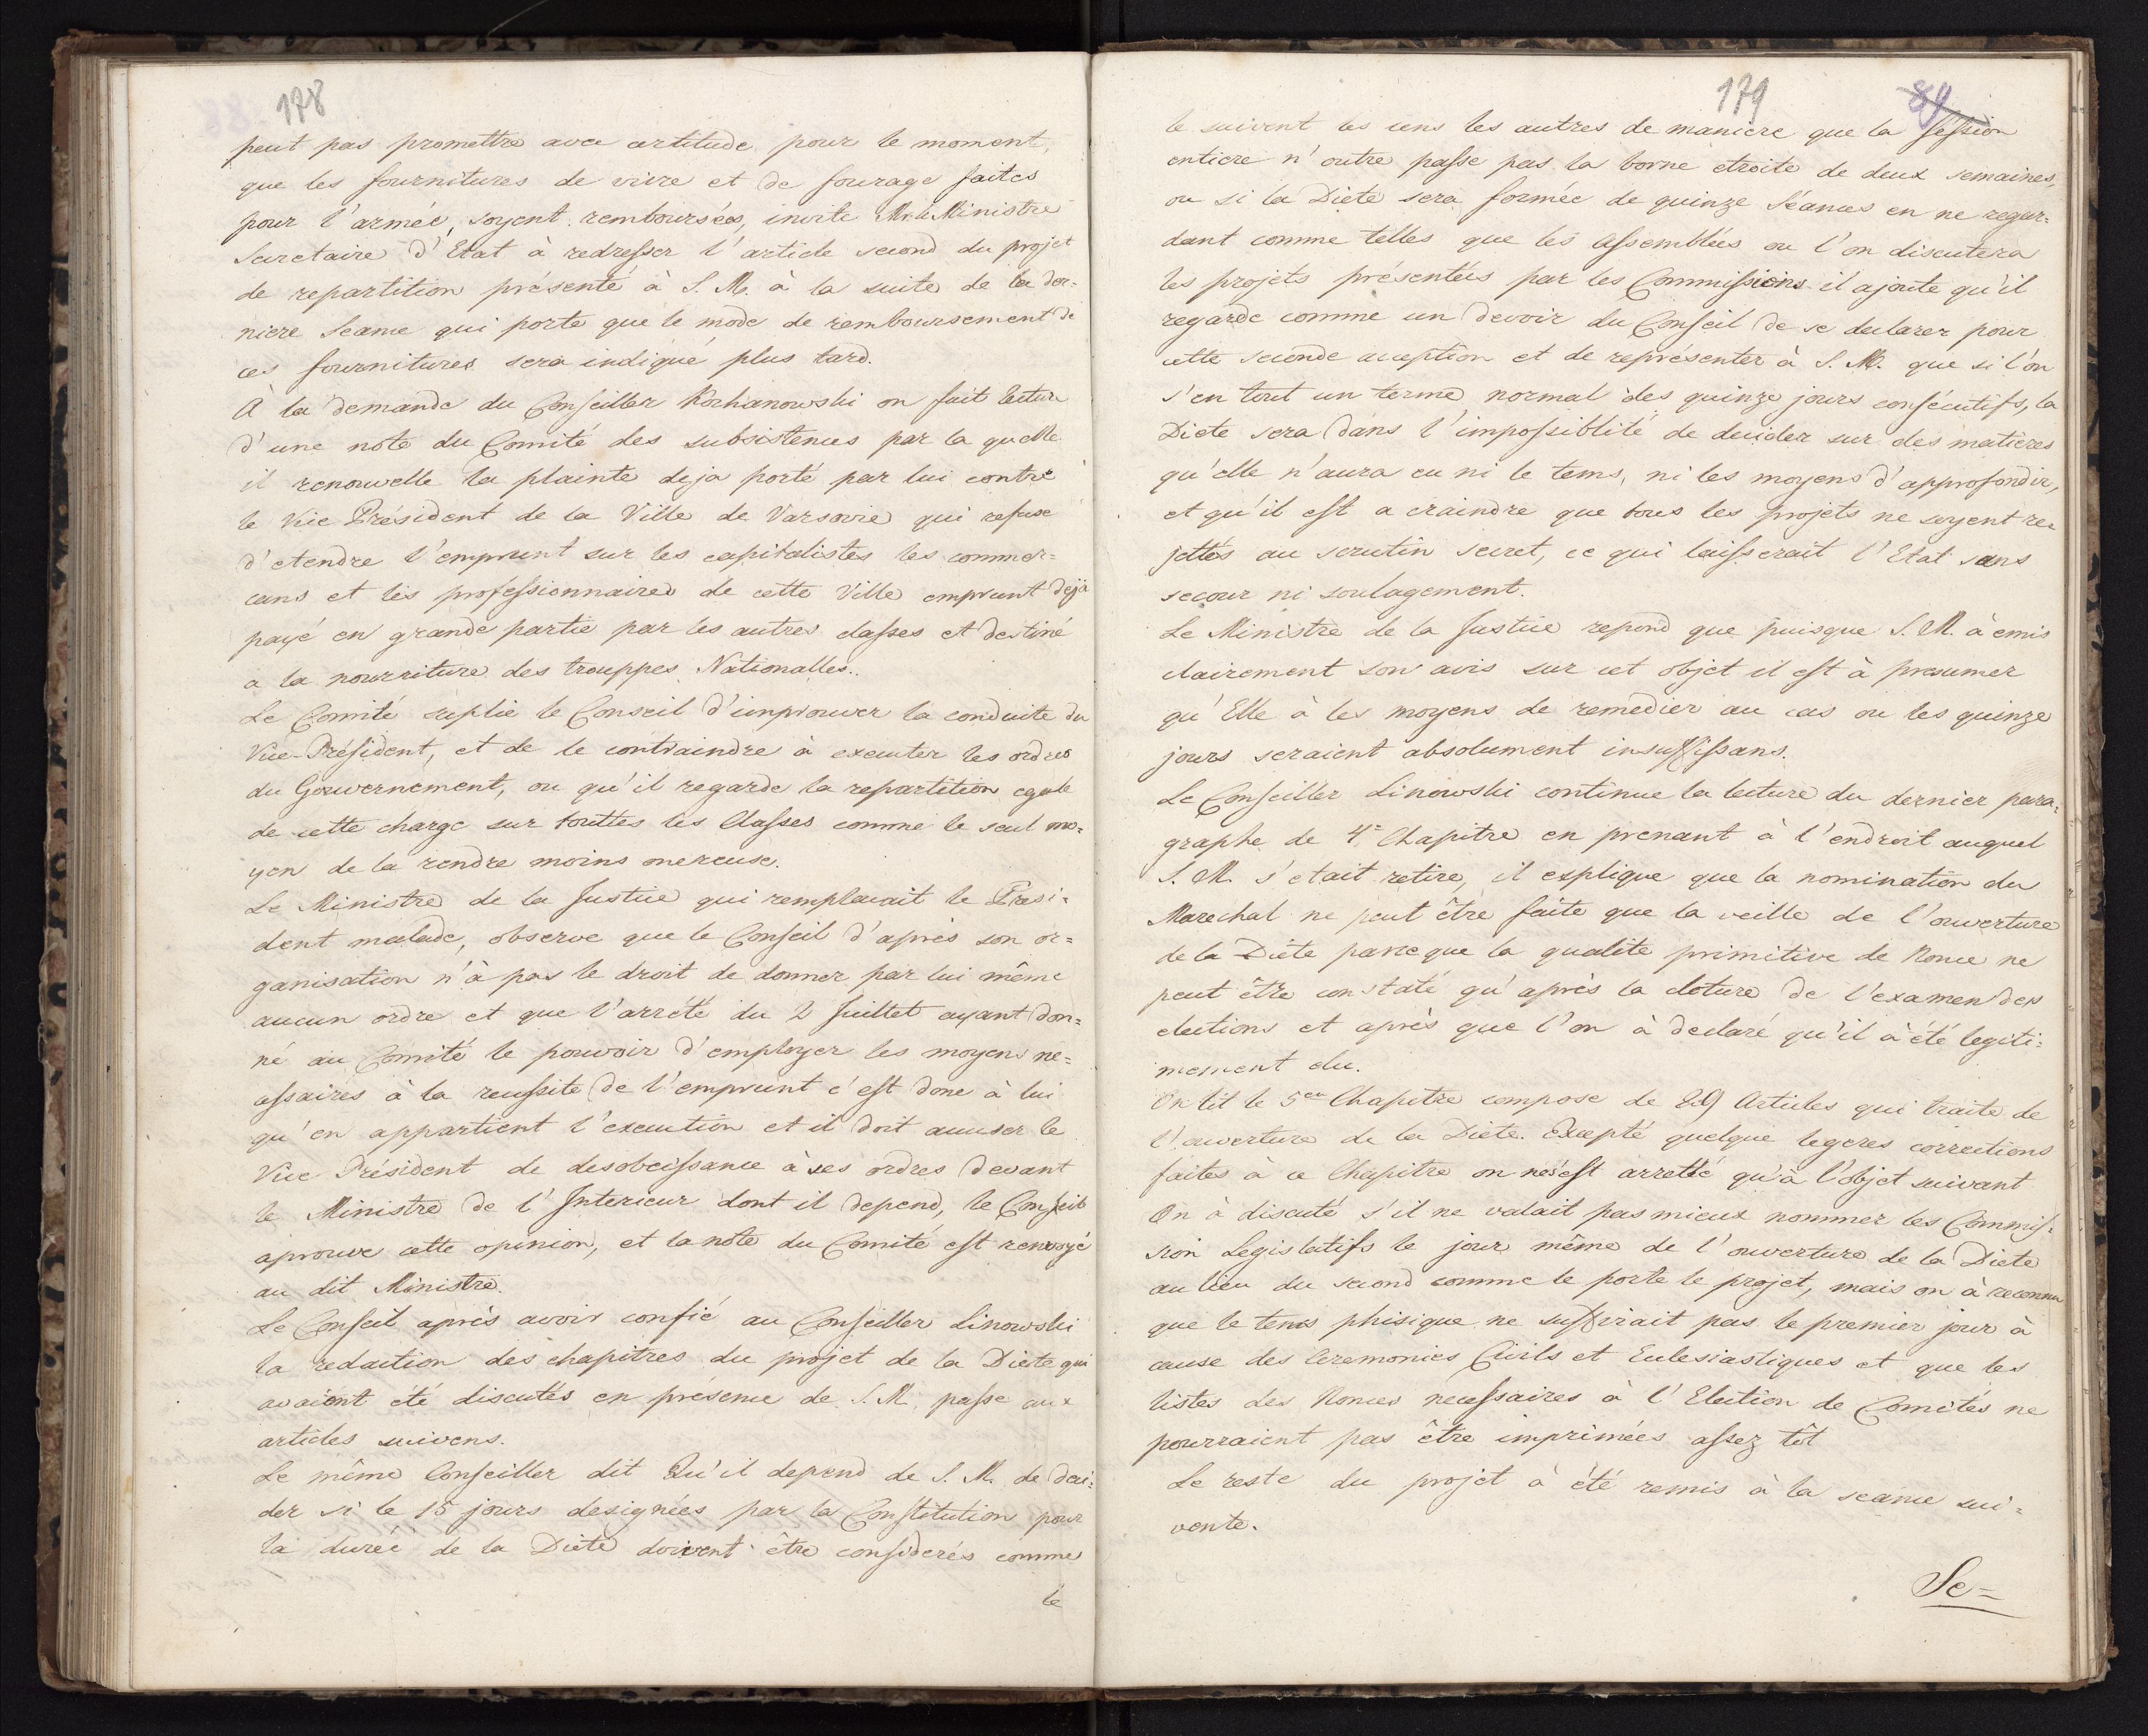 178
peut pas promettre avec certitude pour le moment,
que les fournitures de vivre et de fourage faites
pour l'armée, soyent remboursées, invite Mr. le Ministre
Secretaire d'Etat à redresser l'article second du projet
de repartition présenté à S. M. à la suite de la der=
niere Seance qui porte que le mode de remboursement de
ces fournitures sera indiqué plus tard.
A la demande du Conseiller Kochanowski on fait lecture
d'une note du Comité des subsistences par la quelle
il renouvelle la plainte deja porté par lui contre
le Vice Président de la Ville de Varsovie qui refuse
d'etendre l'emprunt sur les capitalistes les commer=
cans et les professionnaires de cette Ville emprunt dejà
payé en grande partie par les autres classes et destiné
a la nourriture des trouppes Nationalles..
Le Comité suplie le Conseil d'improuver la conduite du
Vice-Président, et de le contraindre à executer les ordres
du Gouvernement, ou qu'il regarde la repartition egale
de cette charge sur touttes les Classes comme le seul mo=
yen de la rendre moins onereuse.
Le Ministre de la Justice qui remplacait le Presi=
dent malade, observe que le Conseil d'après son or=
ganisation n'à pas le droit de donner par lui même
aucun ordre et que l'arrété du 2 Juillet ayant don=
né au Comité le pouvoir d'employer les moyens ne=
cessaires à la reussite de l'emprunt c'est donc à lui
qu'en appartient l'execution et il doit accuser le
Vice Président de desobeissance à ses ordres devant
le Ministre de l'Interieur dont il depend, le Conseil
aprouve cette opinion, et la note du Comité est renvoyé
au dit Ministre.
Le Conseil après avoir confié au Conseiller Linowski
la redaction des chapitres du projet de la Diete qui
avaient été discutés en présence de S. M. passe aux
articles suivens.
Le même Conseiller dit Qu'il depend de S. M. de deci=
der si le 15 jours designées par la Constitution pour
la durée de la Diete doivent être considerés comme
le
179
89
le suivent les uns les autres de maniere que la session
entiere n'outre passe pas la borne etroite de deux semaines,
ou si la Diete sera formée de quinze Séances en ne regar=
dant comme telles que les Assemblées ou l'on discutera
les projets présentées par les Commissions il ajoute qu'il
regarde comme un devoir du Conseil de se declarer pour
cette seconde acception et de représenter à S. M. que si l'on
s'en tient un terme normal des quinze jours consécutifs, la
Diete sera dans l'impossiblité de decider sur des matieres
qu'elle n'aura eu ni le tems, ni les moyens d'approfondir,
et qu'il est a craindre que tous les projets ne soyent re=
jettés au scrutin secret, ce qui laisserait l'Etat sans
secour ni soulagement.
Le Ministre de la Justice repond que puisque S. M. à emis
clairement son avis sur cet objet il est à presumer
qu'Elle à les moyens de remedier au cas ou les quinze
jours seraient absolument insuffissans.
Le Conseiller Linowski continue la lecture du dernier para=
graphe de 4e Chapitre en prenant à l'endroit auquel
S. M. s'etait retire, il explique que la nomination du
Marechal ne peut être faite que la veille de l'ouverture
de la Diete parceque la qualite primitive de Nonce ne
peut être constaté qu'après la cloture de l'examen des
elections et après que l'on à declaré qu'il à été legiti=
mement elu.
On lit le 5er Chapitre compose de 29 Articles qui traite de
l'ouverture de la Diete. Excepté quelque legeres corrections
faites à ce Chapitre on ne s'est arretté qu'à l'objet suivant
On à discuté s'il ne valait pas mieux nommer les Commis=
sion Legislatifs le jour même de l'ouverture de la Diete
au lieu du second comme le porte le projet, mais on à reconnu
que le tems phisique ne suffirait pas le premier jour à
cause des Ceremonies Civils et Eclesiastiques et que les
listes des Nonces necessaires à l'Election de Comités ne
pourraient pas être imprimées assez tôt
Le reste du projet à été remis à la seance sui=
vente.
Se=